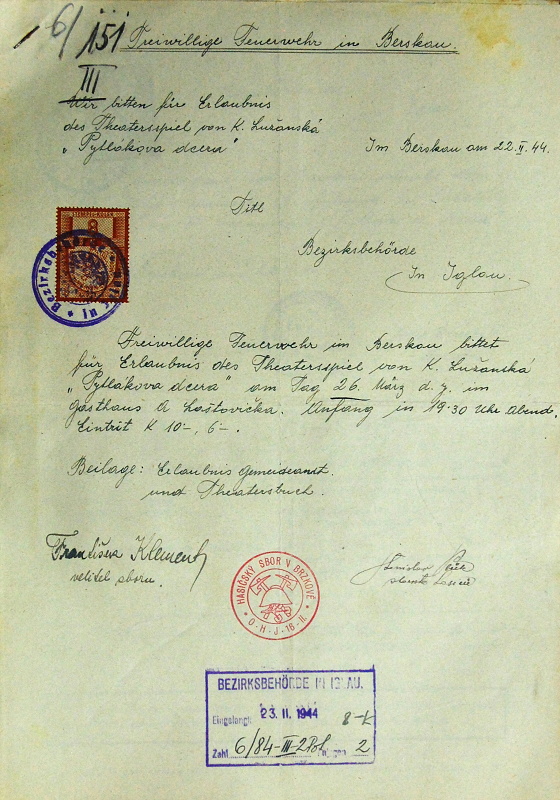 6/151
III
Freiwillige Feuerwehr in Berskau.
Wir bitten für Erlaubnis
des Theatersspiel von K. Lužanská
„Pytlákova dcera"
Im Berskau am 22.II.44.
Titl
Bezirksbehörde
In Iglau.
Bezirksbehörde
Freiwillige Feuerwehr im Berskau bittet
für Erlaubnis des Theatersspiel von K. Lužanská
„Pytlákova dcera" am Tag 26. März d. y. im
Gasthaus A Laštovička. Anfang in 19·30 Uhr Abend.
Eintritt K 10-, 6-.
Beilage: Erlaubnis Gemeideamt
und Theatersbuch.
Františka Klement
velitel sboru.
Stanislav
HASIČSKÝ SBOR V BRZKOVĚ
O·H·J·16-II.
BEZIRKSBEHÖRDE IN IGLAU.
Eingelangt: 23. II. 1944 8-K
Zahl 6/84-III-2Pol 2